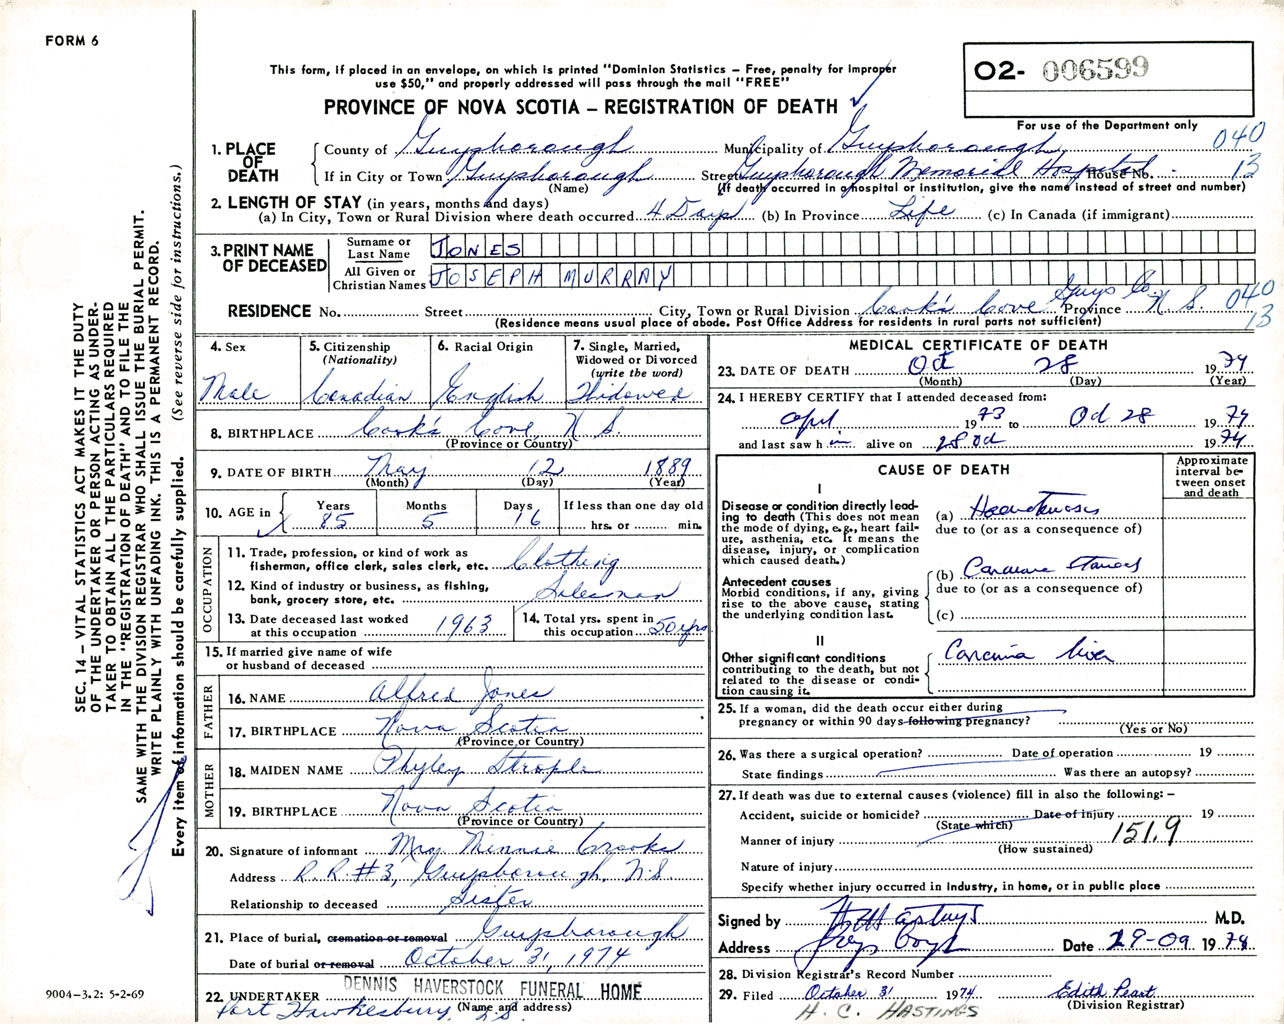 FORM 6
This form, if placed in an envelope, on which is printed "Dominion Statistics – Free, penalty for improper
use $50," and properly addressed will pass through the mail "FREE"
PROVINCE OF NOVA SCOTIA – REGISTRATION OF DEATH
O2- 006599
For use of the Department only
040
13
1. PLACE OF DEATH
County of Guysborough Municipality of Guysborough
If in City or Town Guysborough Street Guysborough Memorial Hospital House No.
(Name) (If death occurred in a hospital or institution, give the name instead of street and number)
2. LENGTH OF STAY (in years, months and days)
(a) In City, Town or Rural Division where death occurred 4 Days (b) In Province Life (c) In Canada (if immigrant)
3. PRINT NAME OF DECEASED
Surname or Last Name JONES
All Given or Christian Names JOSEPH MURRAY
RESIDENCE No. Street City, Town or Rural Division Cook's Cove Guys Co. Province N S. 040
13
(Residence means usual place of abode. Post Office Address for residents in rural parts not sufficient)
4. Sex
Male
5. Citizenship
(Nationality)
Canadian
6. Racial Origin
English
7. Single, Married,
Widowed or Divorced
(write the word)
Widowed
8. BIRTHPLACE Cook's Cove, N S.
(Province or Country)
9. DATE OF BIRTH May 12 1889
(Month) (Day) (Year)
10. AGE in
Years Months Days If less than one day old
85 5 16 hrs. or min.
OCCUPATION
11. Trade, profession, or kind of work as
fisherman, office clerk, sales clerk, etc. Clothing
12. Kind of industry or business, as fishing,
bank, grocery store, etc. Salesman
13. Date deceased last worked
at this occupation 1963
14. Total yrs. spent in
this occupation 50 yrs
15. If married give name of wife
or husband of deceased
FATHER
16. NAME Alfred Jones
17. BIRTHPLACE Nova Scotia
(Province or Country)
MOTHER
18. MAIDEN NAME Phyley Strople
19. BIRTHPLACE Nova Scotia
(Province or Country)
20. Signature of informant Mrs Minnie Crooks
Address R.R.#3, Guysborough, N.S
Relationship to deceased Sister
21. Place of burial, cremation or removal Guysborough
Date of burial or removal October 31, 1974
22. UNDERTAKER DENNIS HAVERSTOCK FUNERAL HOME
(Name and address)
Port Hawkesbury, N.S.
MEDICAL CERTIFICATE OF DEATH
23. DATE OF DEATH Oct 28 1974
(Month) (Day) (Year)
24. I HEREBY CERTIFY that I attended deceased from:
April 1973 to Oct 28 1974
and last saw h im alive on 28 Oct 1974
CAUSE OF DEATH
Approximate
interval be-
tween onset
and death
I
Disease or condition directly lead-
ing to death (This does not mean
the mode of dying, e.g., heart fail-
ure, asthenia, etc. It means the
disease, injury, or complication
which caused death.)
(a)
due to (or as a consequence of)
Antecedent causes
Morbid conditions, if any, giving
rise to the above cause, stating
the underlying condition last.
(b)
due to (or as a consequence of)
(c)
II
Other significant conditions
contributing to the death, but not
related to the disease or condi-
tion causing it.
Carcinoma liver
25. If a woman, did the death occur either during
pregnancy or within 90 days following pregnancy?
(Yes or No)
26. Was there a surgical operation? Date of operation 19
State findings Was there an autopsy?
27. If death was due to external causes (violence) fill in also the following: –
Accident, suicide or homicide? Date of injury 19
(State which)
Manner of injury 151.9
(How sustained)
Nature of injury
Specify whether injury occurred in industry, in home, or in public place
Signed by M.D.
Address Date 29-09 1974
28. Division Registrar's Record Number
29. Filed October 31 1974 Edith Peart
(Division Registrar)
H. C. HASTINGS
SEC. 14 – VITAL STATISTICS ACT MAKES IT THE DUTY
OF THE UNDERTAKER OR PERSON ACTING AS UNDER-
TAKER TO OBTAIN ALL THE PARTICULARS REQUIRED
IN THE "REGISTRATION OF DEATH" AND TO FILE THE
SAME WITH THE DIVISION REGISTRAR WHO SHALL ISSUE THE BURIAL PERMIT.
WRITE PLAINLY WITH UNFADING INK. THIS IS A PERMANENT RECORD.
Every item of information should be carefully supplied. (See reverse side for instructions.)
9004–3.2: 5-2-69